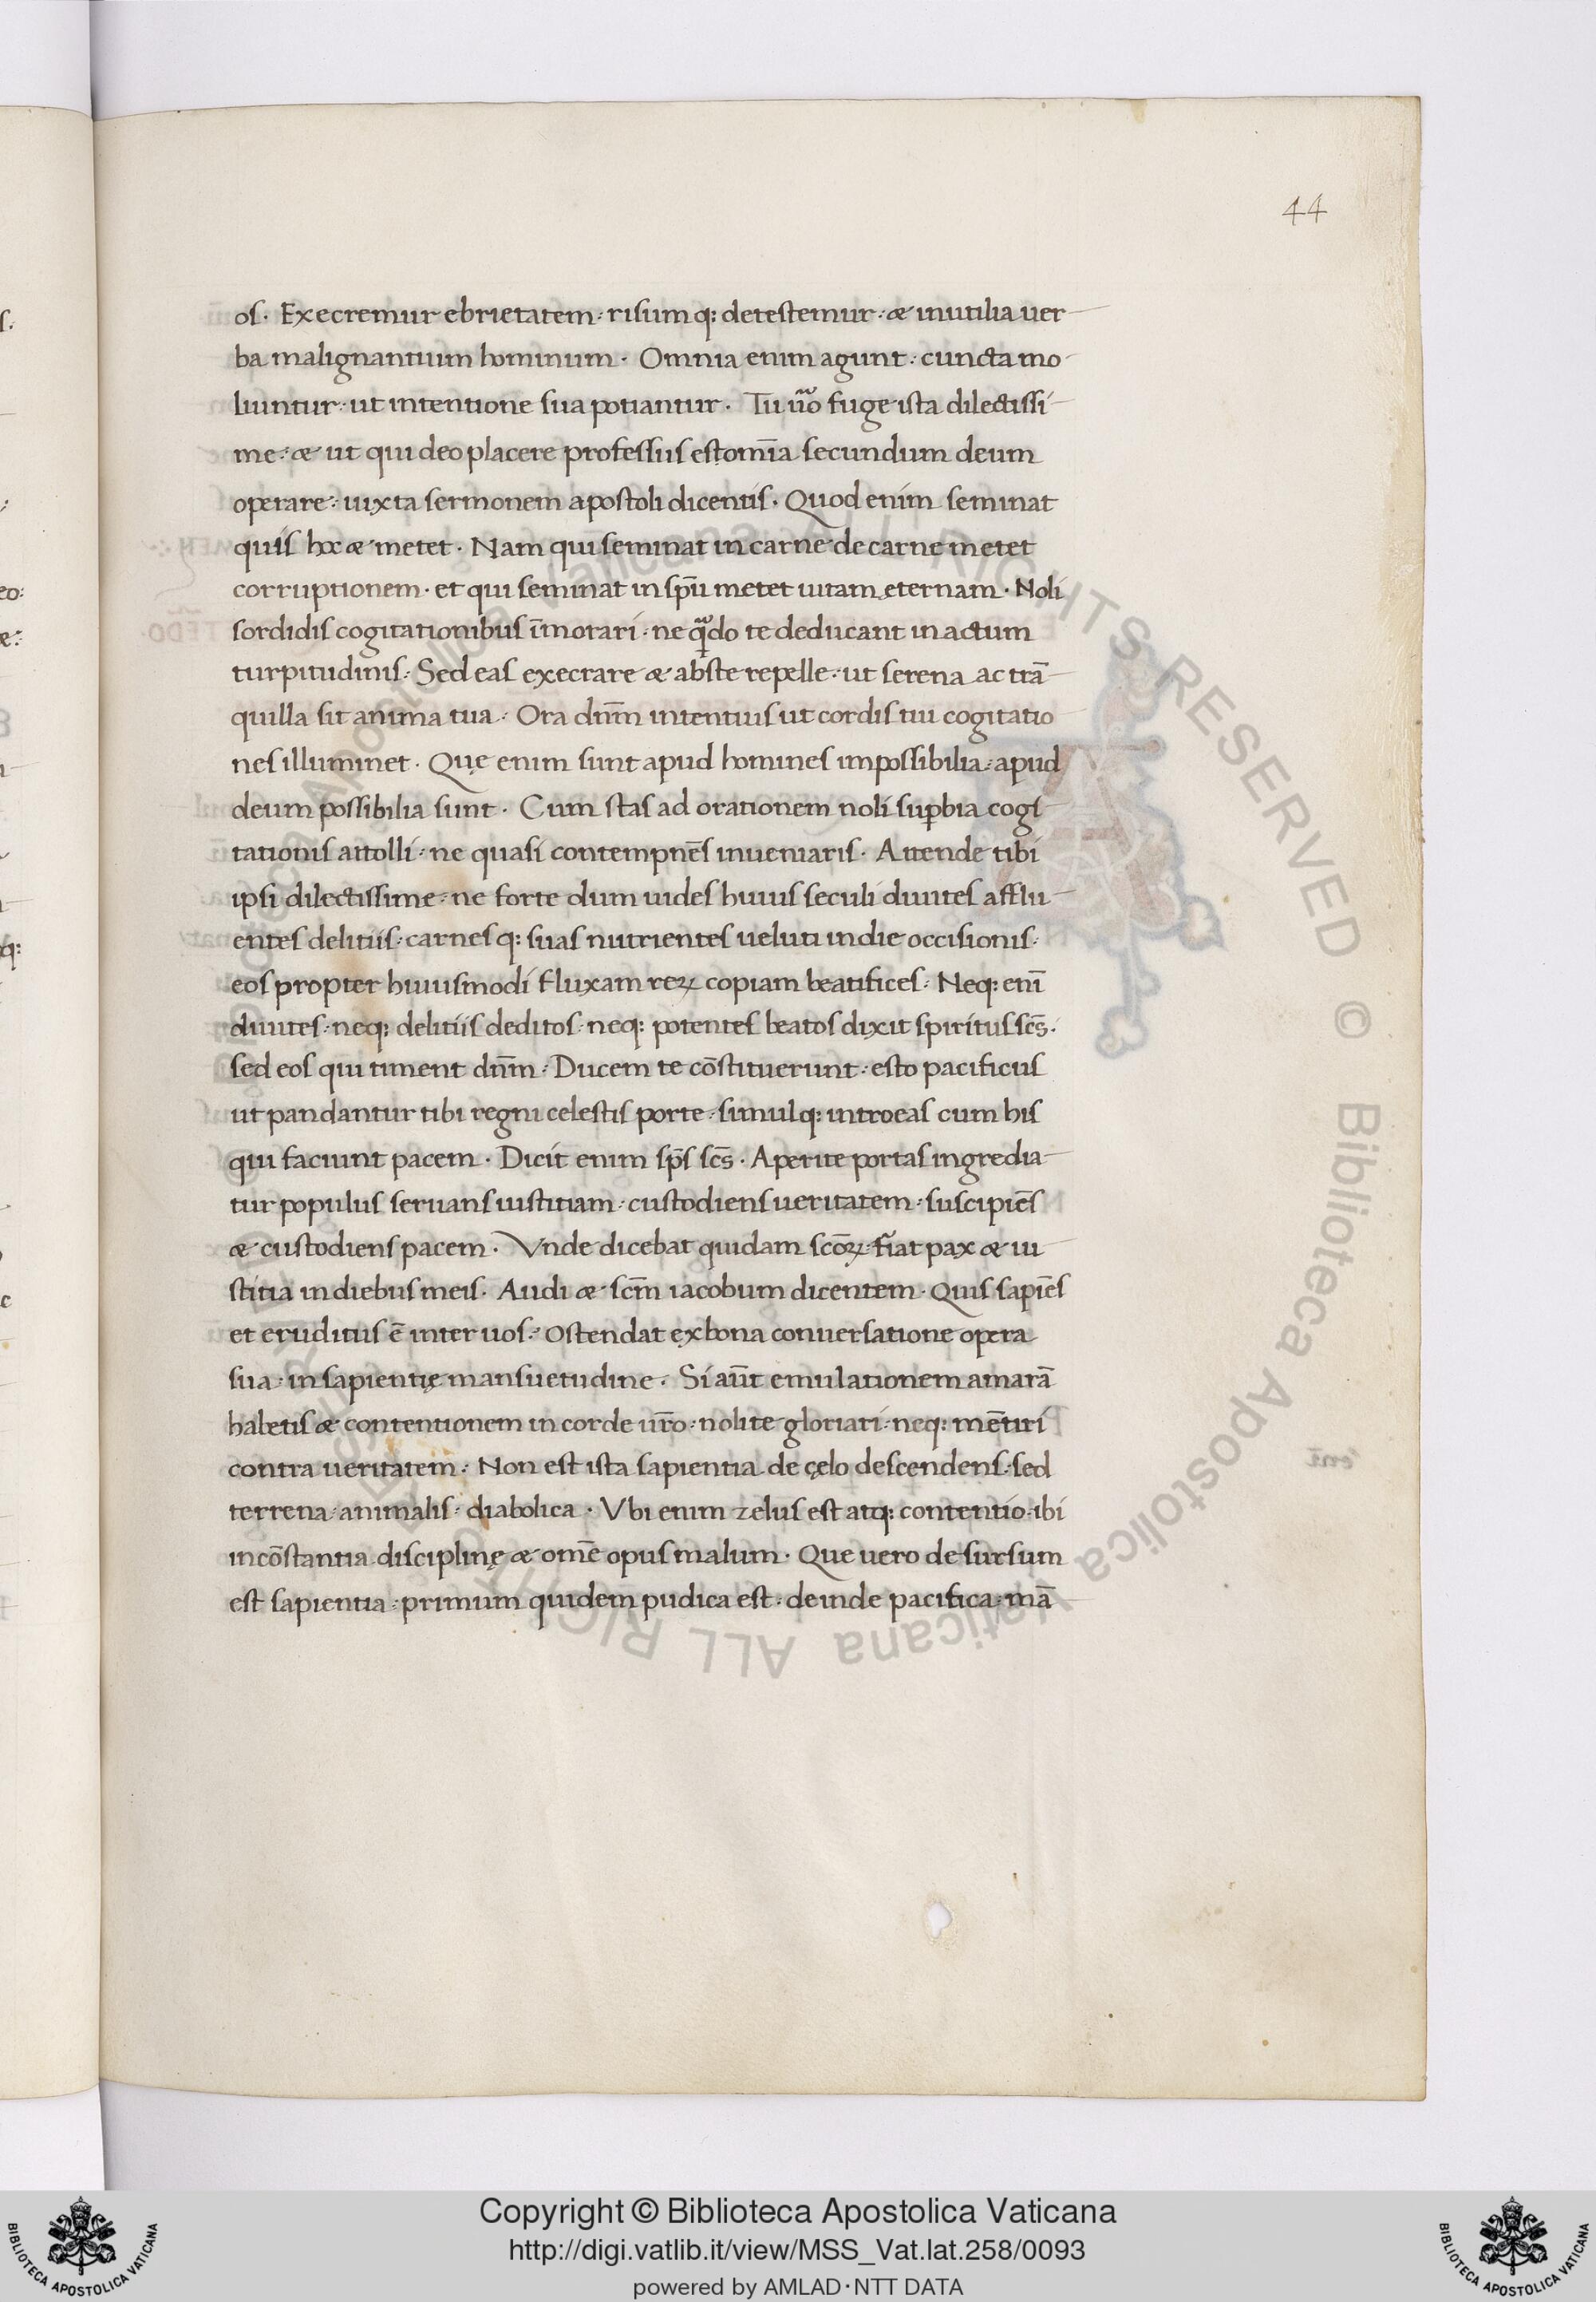 44
os. Execremur ebrietatem: risumq: detestemur: & inutilia uer
ba malignantium hominum. Omnia enim agunt: cuncta mo
liuntur: ut intentione sua potiantur. Tu ũo fuge ista dilectissi
me: & ut qui deo placere professus est om̄ia secundum deum
operare: iuxta sermonem apostoli dicentis. Quod enim seminat
quis hoc & metet. Nam qui seminat in carne de carne metet
corruptionem. et qui seminat in sp̄u metet uitam eternam. Noli
sordidis cogitationibus īmorari: ne qn̄do te deducant in actum
turpitudinis: Sed eas execrare & abste repelle: ut serena ac trā
quilla sit anima tua: Ora dn̄m intentius ut cordis tui cogitatio
nes illuminet. Quę enim sunt apud homines impossibilia: apud
deum possibilia sunt. Cum stas ad orationem noli sup̱bia cogi
tationis attolli: ne quasi contempnēs inueniaris. Attende tibi
ipsi dilectissime: ne forte dum uides huius seculi diuites afflu
entes delitiis: carnesq: suas nutrientes ueluti in die occisionis:
eos propter huiusmodi fluxam reꝝ copiam beatifices: Neq: enī
diuites: neq: delitiis deditos: neq: potentes beatos dixit spiritus sc̄s.
sed eos qui timent dn̄m: Ducem te cōstituerunt: esto pacificus
ut pandantur tibi regni celestis porte: simulq: introeas cum his
qui faciunt pacem. Dicit enim sp̄s sc̄s. Aperite portas ingredia
tur populus seruans iustitiam: custodiens ueritatem: suscipiēs
& custodiens pacem. Vnde dicebat quidam scōꝝ: fiat pax & iu
stitia in diebus meis. Audi & sc̄m iacobum dicentem. Quis sapiēs
et eruditus ē inter uos: Ostendat ex bona conuersatione opera
sua: in sapientię mansuetudine. Si aūt emulationem amarā
habetis & contentionem in corde ur̄o: nolite gloriari: neq: mētiri
contra ueritatem: Non est ista sapientia de cęlo descendens: sed
terrena: animalis: diabolica. Vbi enim zelus est atq: contentio: ibi
incōstantia disciplinę & om̄e opus malum. Que vero desursum
est sapientia: primum quidem pudica est: deinde pacifica: mā
Copyright © Biblioteca Apostolica Vaticana
http://digi.vatlib.it/view/MSS_Vat.lat.258/0093
powered by AMLAD·NTT DATA